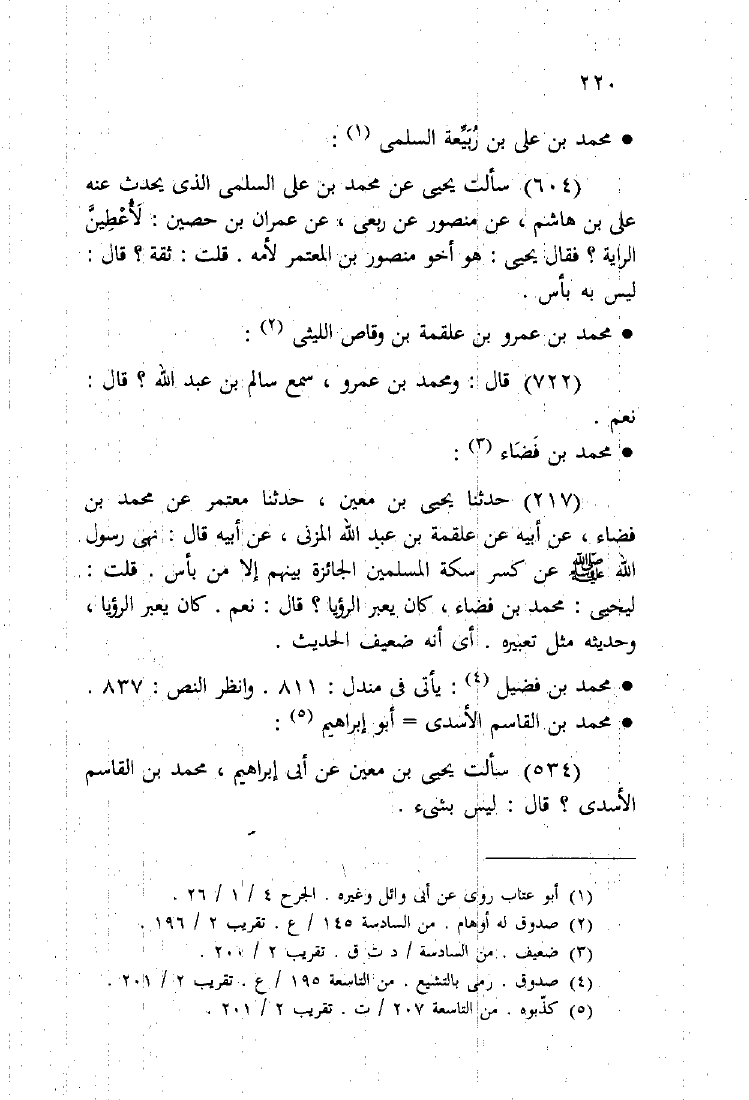 ٢٢٠
● محمد بن على بن رُبَيِّعة السلمى (١) :
(٦٠٤) سألت يحيى عن محمد بن على السلمى الذى يحدث عنه
على بن هاشم ، عن منصور عن ربعى ، عن عمران بن حصين : لَأُعْطِينَّ
الراية ؟ فقال يحيى : هو أخو منصور بن المعتمر لأمه . قلت : ثقة ؟ قال :
ليس به بأس .
● محمد بن عمرو بن علقمة بن وقاص الليثى (٢) :
(٧٢٢) قال : ومحمد بن عمرو ، سمع سالم بن عبد الله ؟ قال :
نعم .
● محمد بن فَضَاء (٣) :
(٢١٧) حدثنا يحيى بن معين ، حدثنا معتمر عن محمد بن
فضاء ، عن أبيه عن علقمة بن عبد الله المزنى ، عن أبيه قال : نهى رسول
الله ﷺ عن كسر سكة المسلمين الجائزة بينهم إلا من بأس . قلت :
ليحيى : محمد بن فضاء ، كان يعبر الرؤيا ؟ قال : نعم . كان يعبر الرؤيا ،
وحديثه مثل تعبيره . أى أنه ضعيف الحديث .
● محمد بن فضيل (٤) : يأتى فى مندل : ٨١١ . وانظر النص : ٨٣٧ .
● محمد بن القاسم الأسدى = أبو إبراهيم (٥) :
(٥٣٤) سألت يحيى بن معين عن أبى إبراهيم ، محمد بن القاسم
الأسدى ؟ قال : ليس بشىء .
(١) أبو عتاب روى عن أبى وائل وغيره . الجرح ٤ / ١ / ٢٦ .
(٢) صدوق له أوهام . من السادسة ١٤٥ / ع . تقريب ٢ / ١٩٦ .
(٣) ضعيف . من السادسة / د ت ق . تقريب ٢ / ٢٠١ .
(٤) صدوق . رمى بالتشيع . من التاسعة ١٩٥ / ع . تقريب ٢ / ٢٠١ .
(٥) كذّبوه . من التاسعة ٢٠٧ / ت . تقريب ٢ / ٢٠١ .